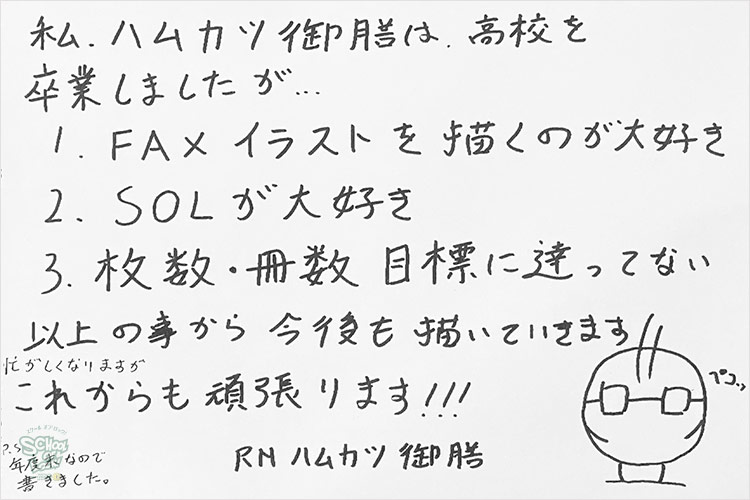 私、ハムカツ御膳は、高校を
卒業しましたが…
1. FAXイラストを描くのが大好き
2. SOLが大好き
3. 枚数・冊数目標に達ってない
以上の事から今後も描いていきます
忙がしくなりますが
これからも頑張ります!!!
プコッ
P.S
年度末なので
書きました。
RN ハムカツ御膳